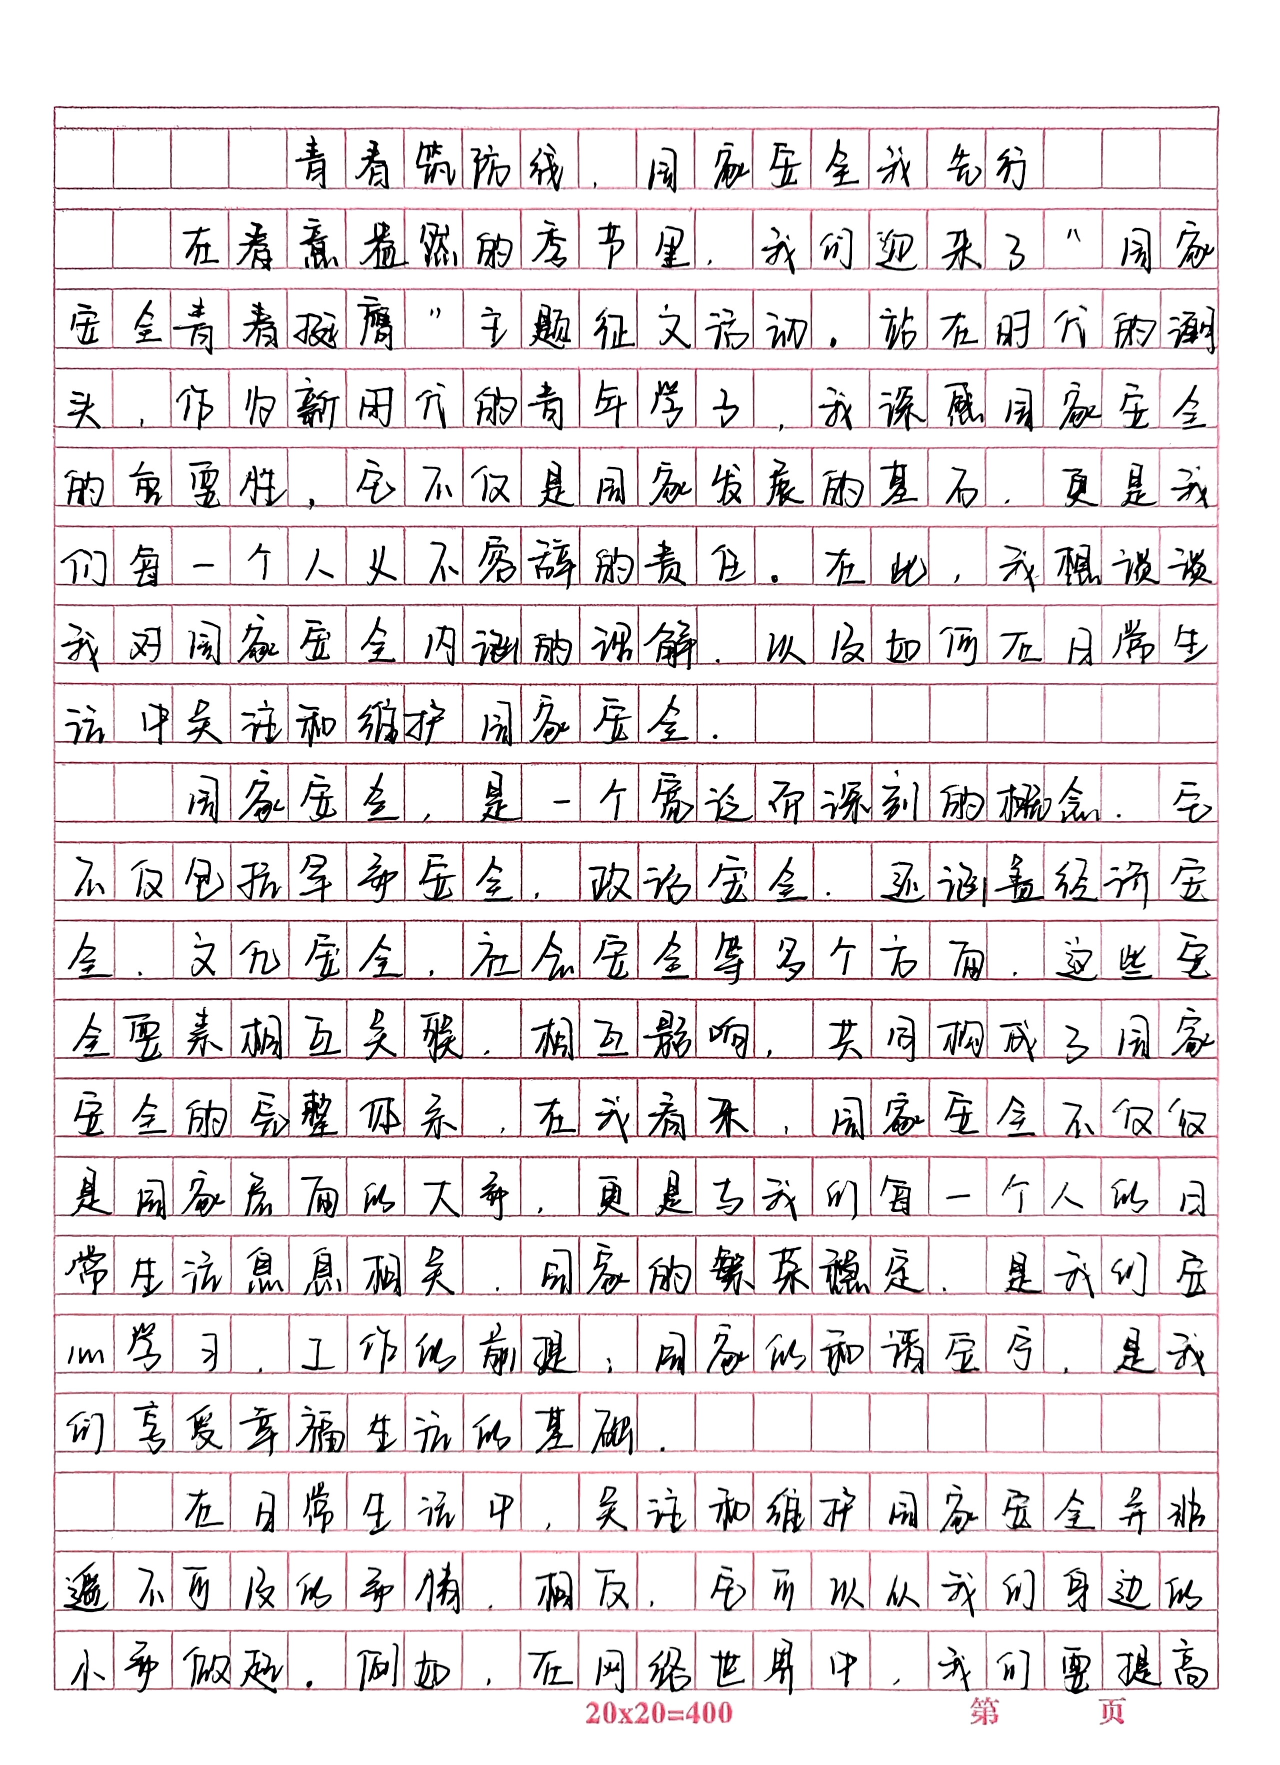 青春筑防线，国家安全我先行
在春意盎然的季节里，我们迎来了“国家
安全青春挺膺”主题征文活动。站在时代的潮
头，作为新时代的青年学子，我深感国家安全
的重要性，它不仅是国家发展的基石，更是我
们每一个人义不容辞的责任。在此，我想谈谈
我对国家安全内涵的理解，以及如何在日常生
活中关注和维护国家安全.
国家安全，是一个宽泛而深刻的概念．它
不仅包括军事安全，政治安全．还涵盖经济安
全、文化安全，社会安全等多个方面．这些安
全要素相互关联，相互影响，共同构成了国家
安全的完整体系，在我看来，国家安全不仅仅
是国家层面的大事，更是与我们每一个人的日
常生活息息相关．国家的繁荣稳定，是我们安
心学习，工作的前提；国家的和谐安宁，是我
们享受幸福生活的基础.
在日常生活中，关注和维护国家安全并非
遥不可及的事情．相反，它可以从我们身边的
小事做起。例如，在网络世界中，我们要提高
20x20=400 第 页